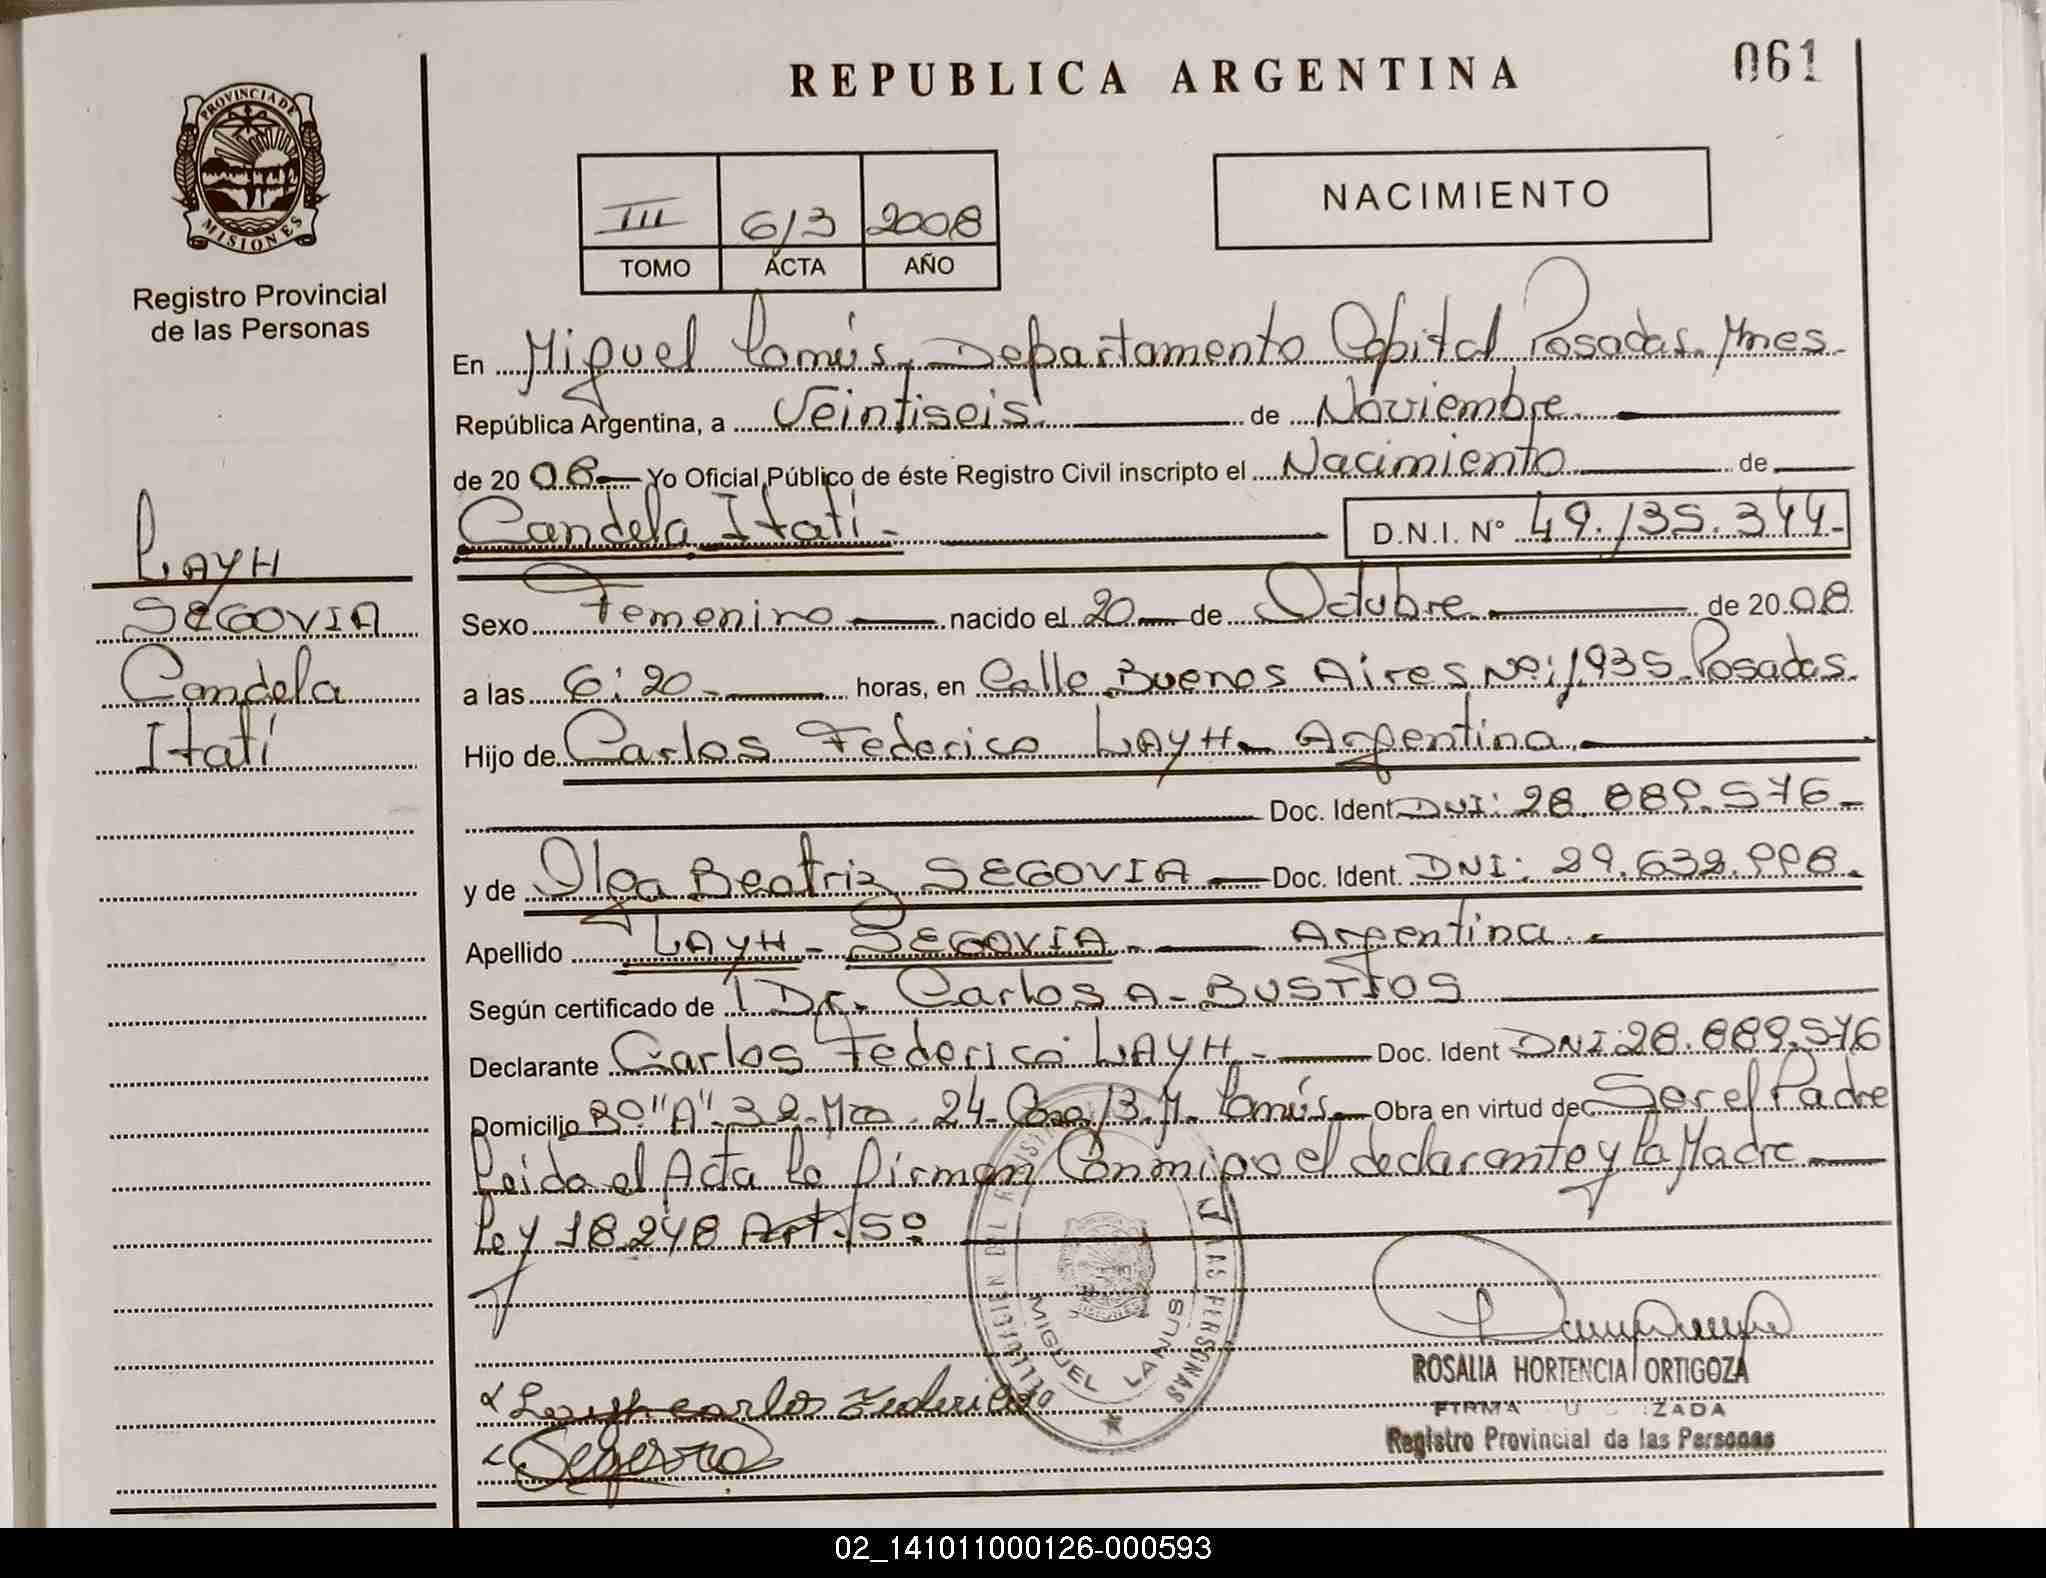 REPUBLICA ARGENTINA
061
PROVINCIA DE
MISIONES
Registro Provincial
de las Personas
III 613 2008
TOMO ACTA AÑO
NACIMIENTO
LAYH
SEGOVIA
Candela
Itatí
En Miguel Lanús, Departamento Capital Posadas. Mnes.
República Argentina, a Veintiseis de Noviembre
de 20 08 Yo Oficial Público de éste Registro Civil inscripto el Nacimiento de
Candela Itatí.- D.N.I. N° 49.135.344-
Sexo Femenino nacido el 20 de Octubre de 20 08
a las 6:20 horas, en Calle Buenos Aires Nº: 1935. Posadas.
Hijo de Carlos Federico LAYH- Argentina.
Doc. Ident DNI: 28.889.576-
y de Olga Beatriz SEGOVIA Doc. Ident. DNI: 29.632.998.
Apellido LAYH- SEGOVIA.- Argentina.
Según certificado de Dr. Carlos A- BUSTOS
Declarante Carlos Federico LAYH- Doc. Ident DNI: 28.889.576
Domicilio Bº "A"- 32- Mza. 24- Casa 13. M. Lanús. Obra en virtud de Ser el Padre
Leida el Acta la Firman Conmigo el declarante y la Madre
Ley 18.248 Art. 5º
DELEGACION DEL REGISTRO LAS PERSONAS
MIGUEL LANUS
Layh carlos Federico
Segovia
ROSALIA HORTENCIA ORTIGOZA
FIRMA
Registro Provincial de las Personas
02_141011000126-000593